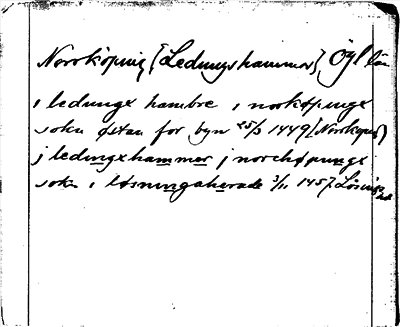 Norrköping (Ledungshammar), Ögl län
i ledungx hambre i norkøpungx
sokn østan for byn 25/3 1449 (Norrköping)
j ledingxhammar j norchøpungx
sokn i løsningahærade 3/11 1457 Lösings